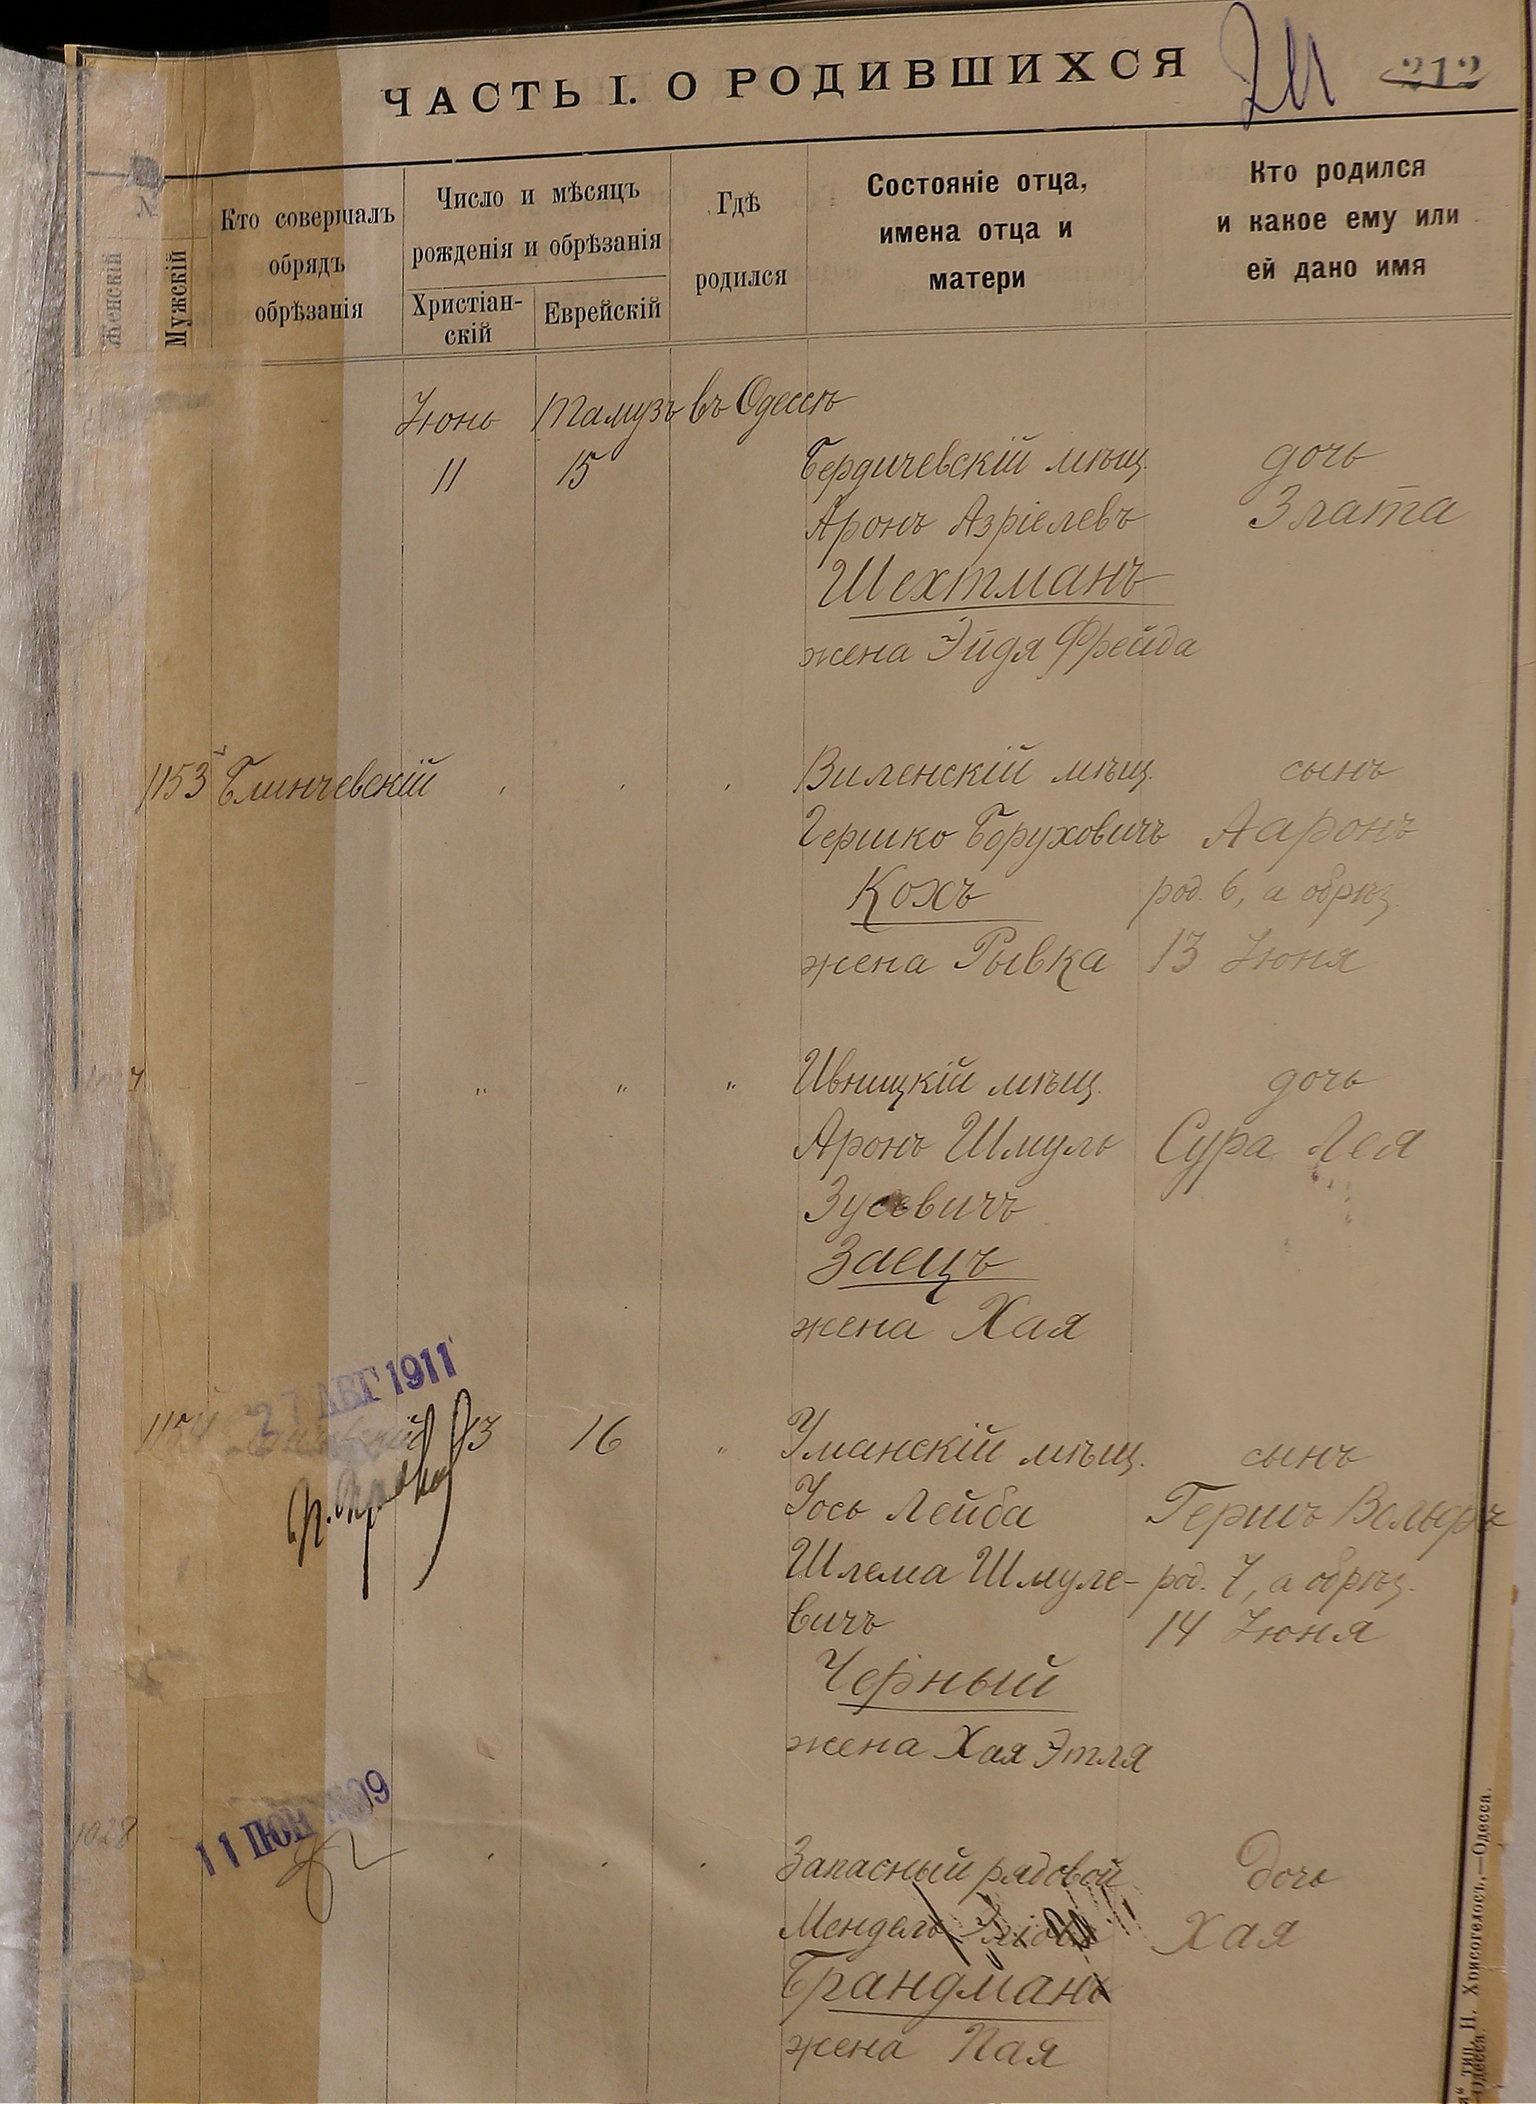 ЧАСТЬ I. О РОДИВШИХСЯ
211
212
Женскій
Мужскій
Кто совершалъ
обрядъ
обрѣзанія
Число и мѣсяцъ
рожденія и обрѣзанія
Христіан-
скій
Еврейскій
Гдѣ
родился
Состояніе отца,
имена отца и
матери
Кто родился
и какое ему или
ей дано имя
Іюнь Тамузъ въ Одессѣ
11 15
Бердичевскій мѣщ. дочь
Аронъ Азріелевъ Злата
Шехтманъ
жена Эйдя Фрейда
1153 Блинчевскій Виленскій мѣщ. сынъ
Гершко Боруховичъ Ааронъ
Кохъ род. 6, а обрѣз.
жена Рывка 13 Іюня
" " " Ивницкій мѣщ. дочь
Аронъ Шмуль Сура Лея
Зусевичъ
Заецъ
жена Хая
27 АВГ 1911
1154 13 16 " Уманскій мѣщ. сынъ
Іось Лейба Гершъ Вольфъ
Шлема Шмуле- род. 7, а обрѣз.
вичъ 14 Іюня
Черный
жена Хая Этля
11 ІЮН 1909
1028 Запасный рядовой дочь
Мендель Хая
Брандманъ
жена Пая
тип. Н. Хрисогелосъ,—Одесса.